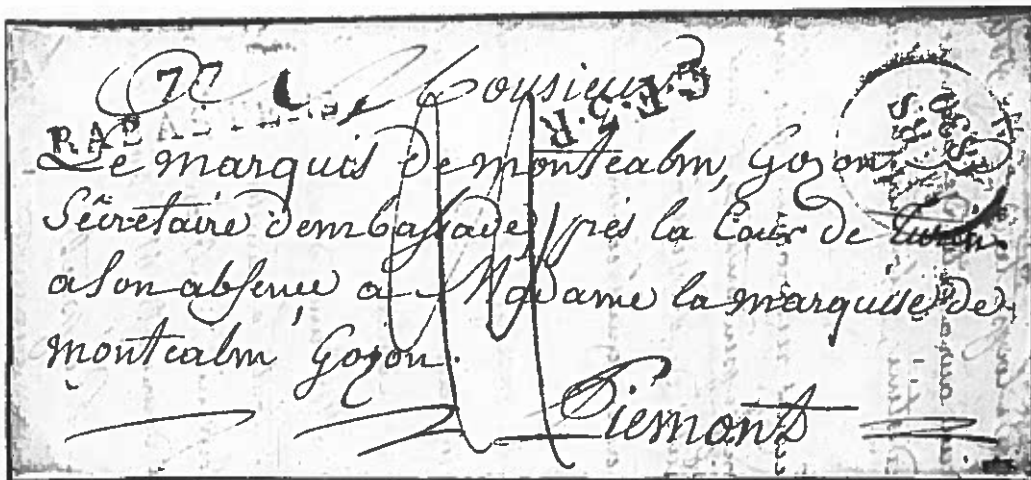 77
Monsieur
R.C.F.R
Le Marquis de montcalm, Gozon
Sécretaire dembassade près la Cour de turin.
a son absence a Madame la marquise de
montcalm Gozon.
Piemont